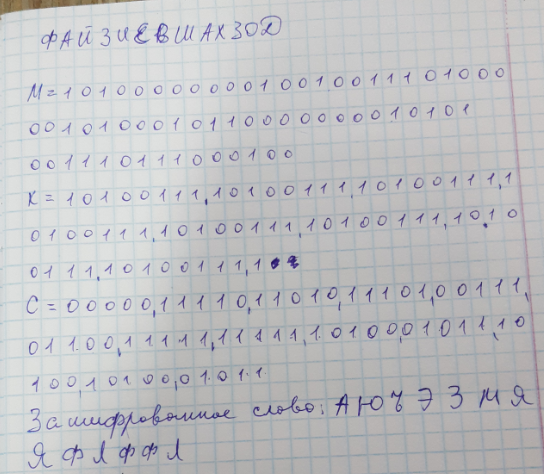 ФАЙЗИЕВШАХЗОД
М=1010000000010010011101000
0010100010110000000010101
001110111000100
К=10100111,10100111,10100111,1
0100111,10100111,10100111,10,10
0111,10100111,1
С=00000,11110,11010,11101,00111,
01100,11111,11111,10100,01011,10
100,10100,01011
Зашифрованное слово: АЮЪЭЗМЯ
ЯФЛФФЛ